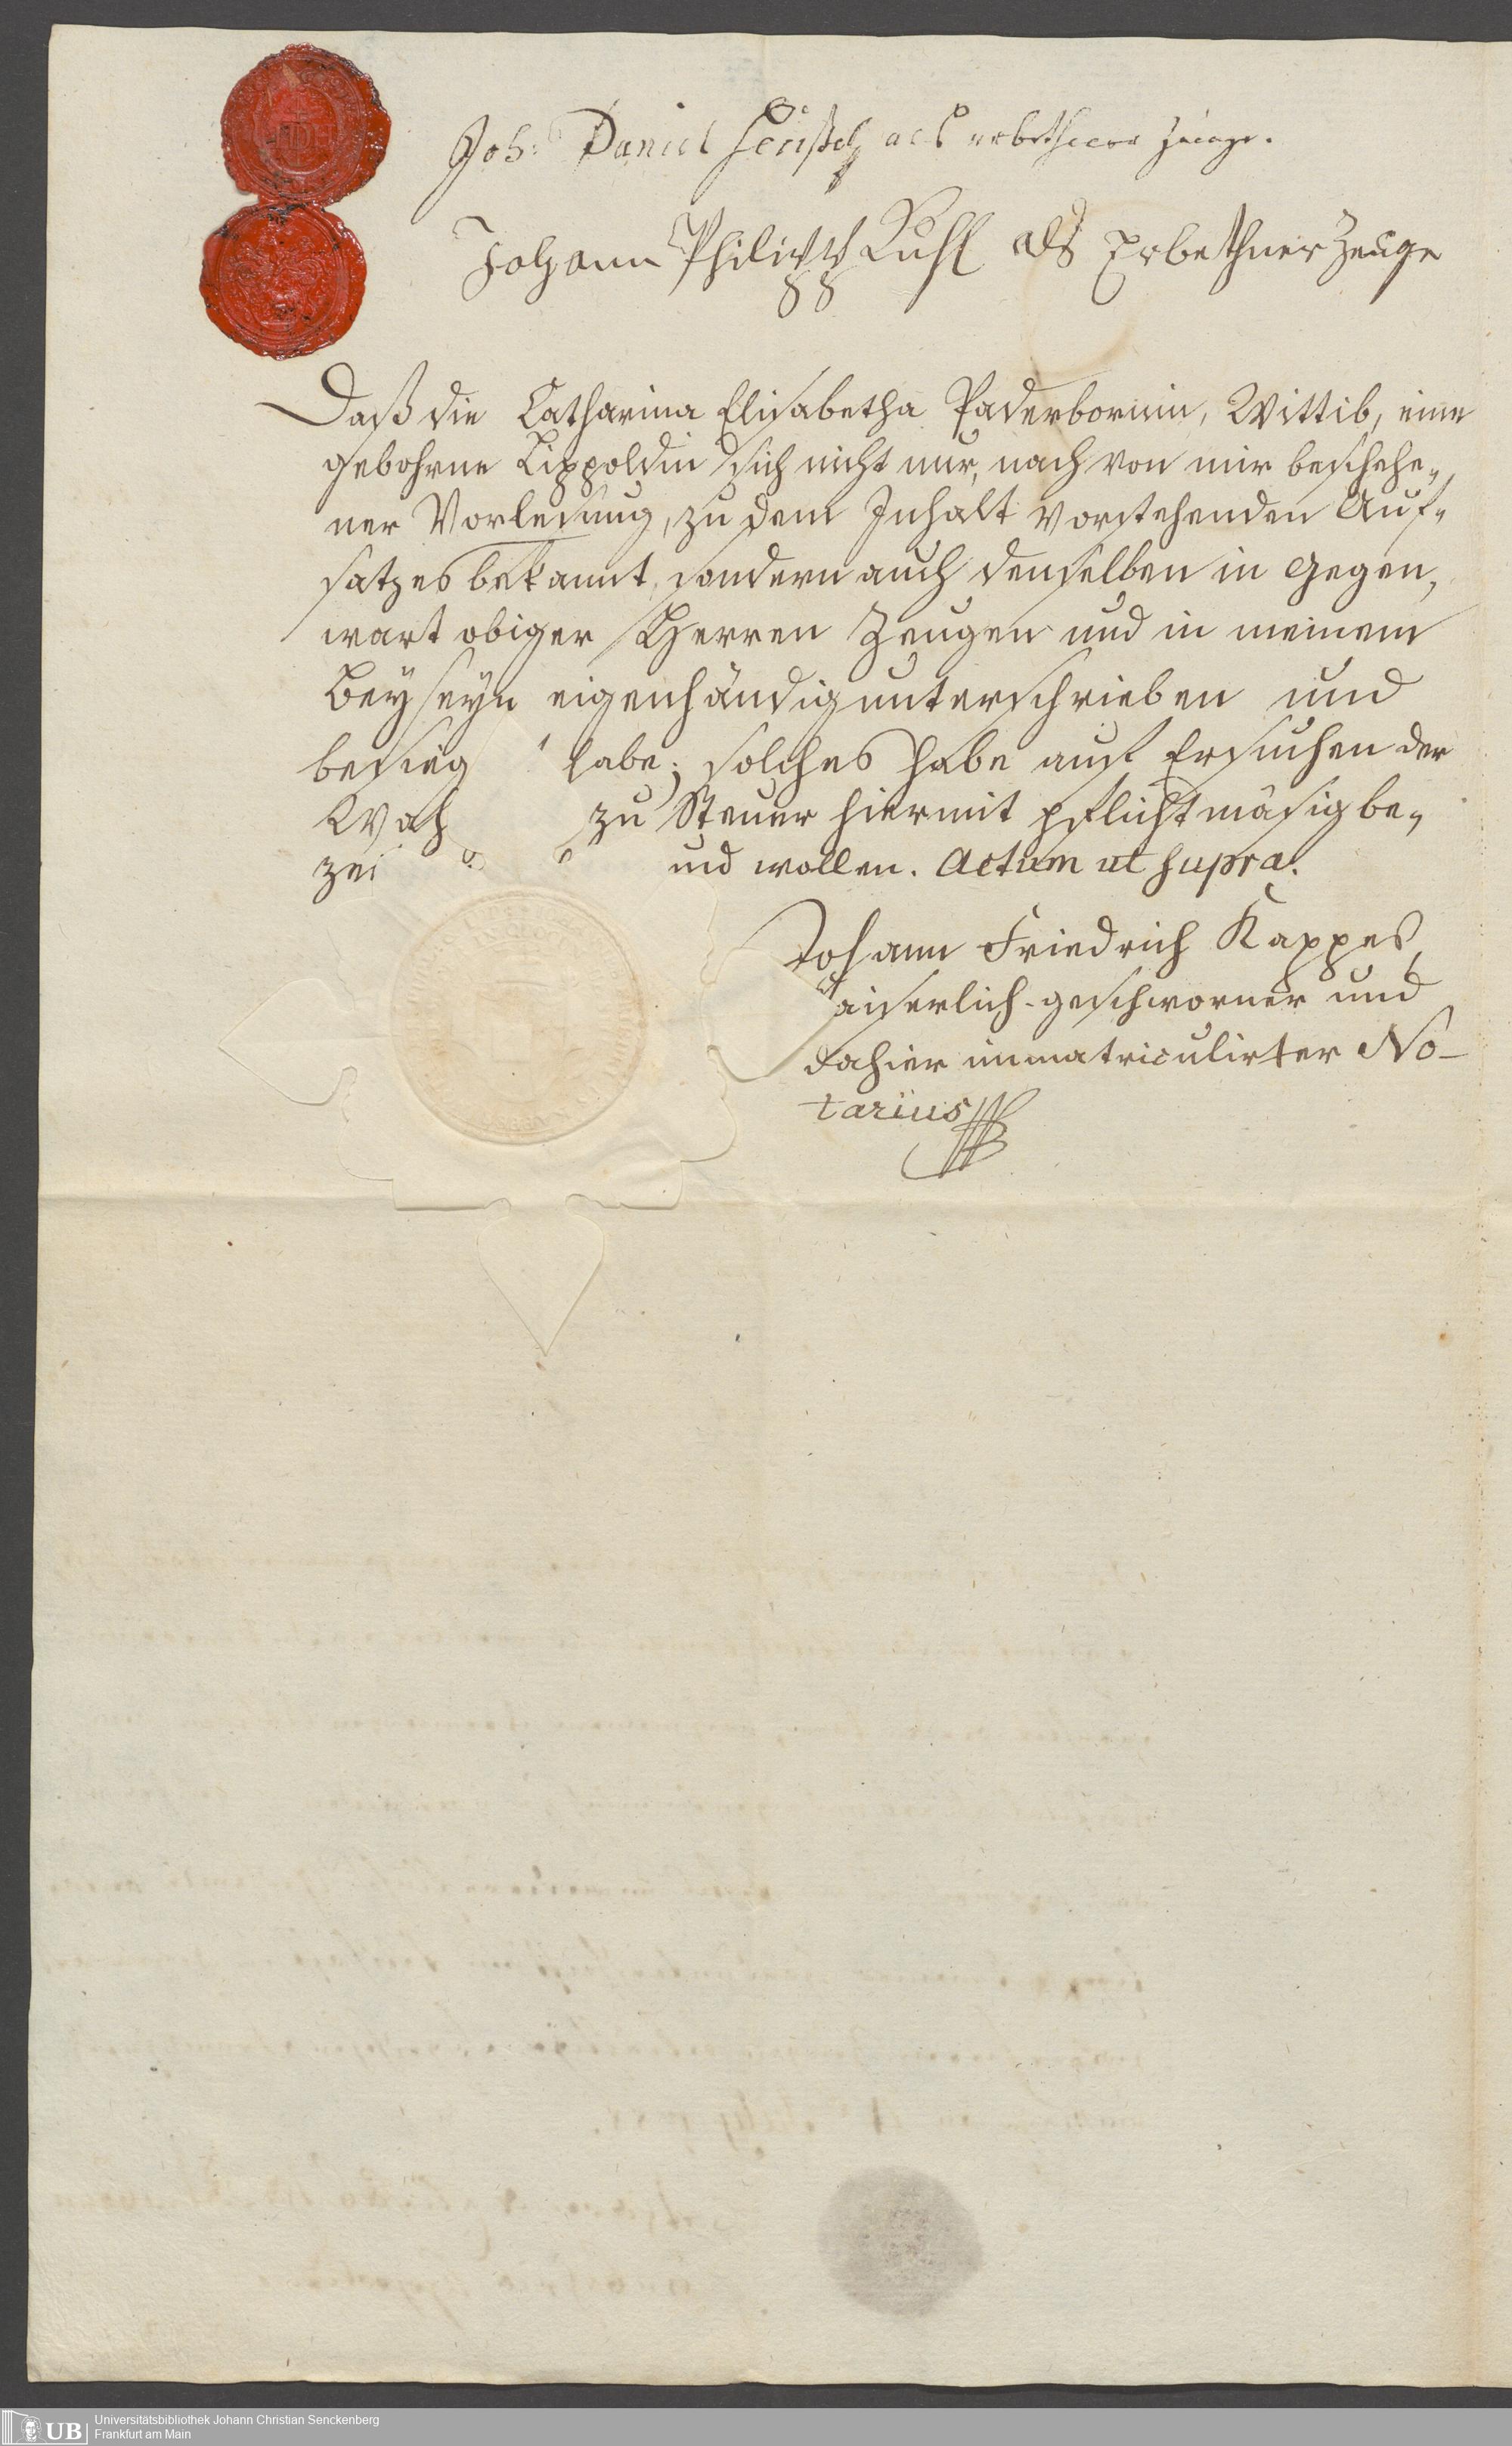 Joh: Daniel als erbethener Zeuge.
Johann Philipp Ruhl als Erbethner Zeuge
Daß die Catharina Elisabetha Paderbornin, Wittib, eine
gebohrne Lippoldin sich nicht nur, nach von mir beschehe-
ner Vorlesung, zu dem Inhalt vorstehenden Auf-
satzes bekannt, sondern auch denselben in Gegen-
wart obiger Herren Zeugen und in meinem
Beyseyn eigenhändig unterschrieben und
besieg habe; solches habe auf Ersuchen der
Wah zu Steuer hiermit pflichtmäsig be-
zei und wollen. Actum ut supra.
Johann Friedrich Kappes
aiserlich-geschworner und
dahier immatriculirter No-
tarius
UB
Universitätsbibliothek Johann Christian Senckenberg
Frankfurt am Main